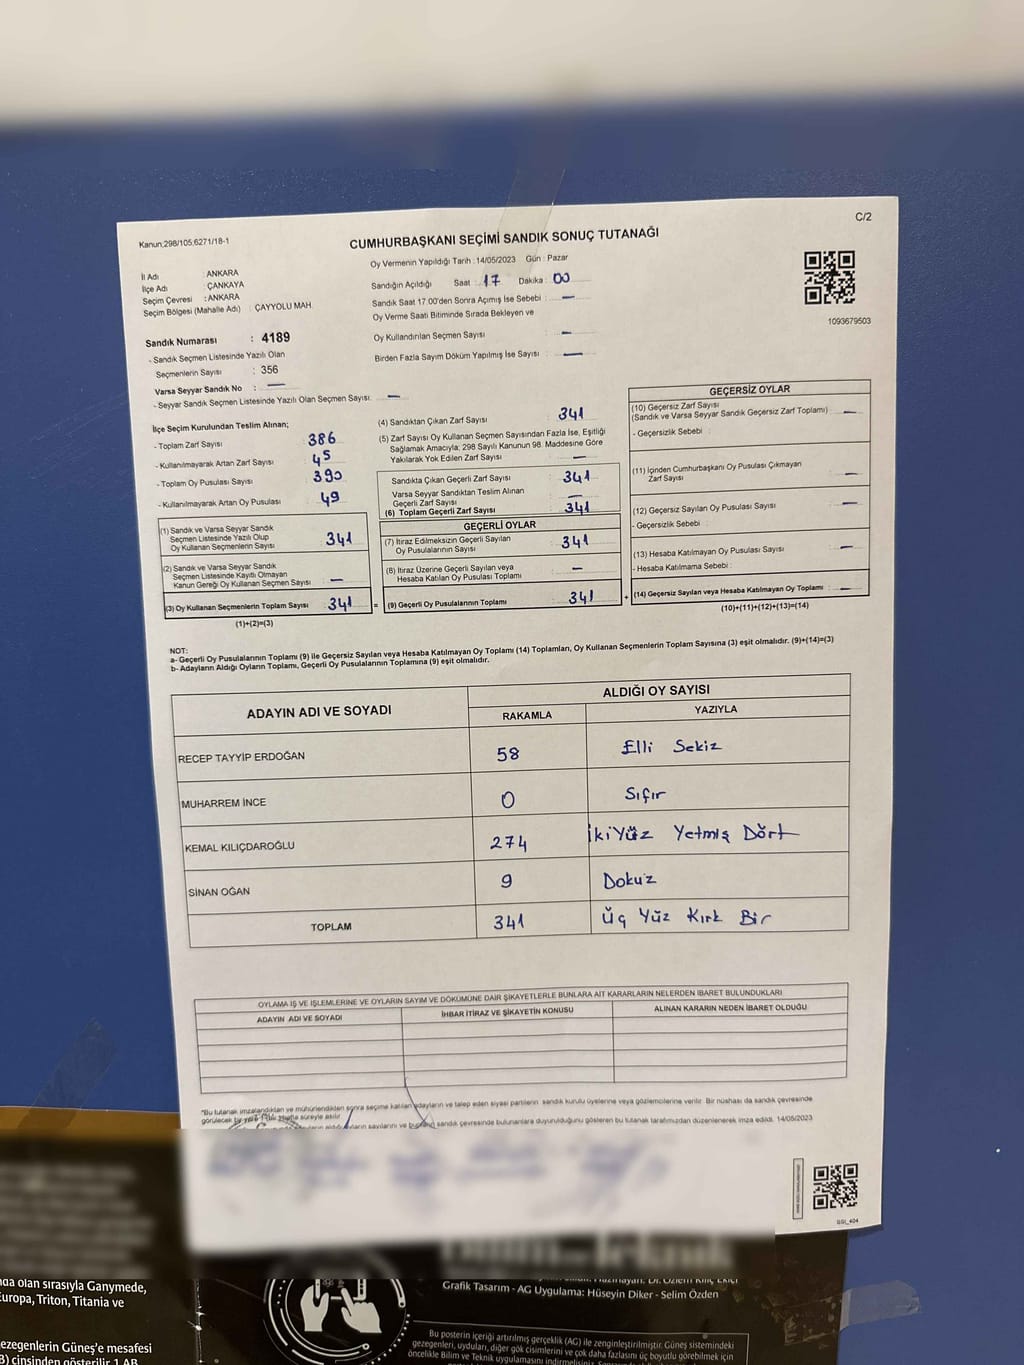 Kanun:298/105;6271/18-1
C/2
CUMHURBAŞKANI SEÇİMİ SANDIK SONUÇ TUTANAĞI
Oy Vermenin Yapıldığı Tarih :14/05/2023 Gün : Pazar
İl Adı : ANKARA
İlçe Adı : ÇANKAYA
Seçim Çevresi : ANKARA
Seçim Bölgesi (Mahalle Adı) : ÇAYYOLU MAH
Sandığın Açıldığı Saat : 17 Dakika : 00
Sandık Saat 17.00'den Sonra Açımış İse Sebebi : —
Oy Verme Saati Bitiminde Sırada Bekleyen ve
Oy Kullandırılan Seçmen Sayısı : —
Birden Fazla Sayım Döküm Yapılmış İse Sayısı : —
1093679503
Sandık Numarası : 4189
- Sandık Seçmen Listesinde Yazılı Olan
Seçmenlerin Sayısı : 356
Varsa Seyyar Sandık No : —
- Seyyar Sandık Seçmen Listesinde Yazılı Olan Seçmen Sayısı: —
İlçe Seçim Kurulundan Teslim Alınan;
- Toplam Zarf Sayısı : 386
- Kullanılmayarak Artan Zarf Sayısı : 45
- Toplam Oy Pusulası Sayısı : 390
- Kullanılmayarak Artan Oy Pusulası : 49
(1) Sandık ve Varsa Seyyar Sandık
Seçmen Listesinde Yazılı Olup
Oy Kullanan Seçmenlerin Sayısı : 341
(2) Sandık ve Varsa Seyyar Sandık
Seçmen Listesinde Kayıtlı Olmayan
Kanun Gereği Oy Kullanan Seçmen Sayısı : —
(3) Oy Kullanan Seçmenlerin Toplam Sayısı : 341 =
(1)+(2)=(3)
(4) Sandıktan Çıkan Zarf Sayısı : 341
(5) Zarf Sayısı Oy Kullanan Seçmen Sayısından Fazla İse, Eşitliği
Sağlamak Amacıyla; 298 Sayılı Kanunun 98. Maddesine Göre
Yakılarak Yok Edilen Zarf Sayısı : —
Sandıkta Çıkan Geçerli Zarf Sayısı : 341
Varsa Seyyar Sandıktan Teslim Alınan
Geçerli Zarf Sayısı : —
(6) Toplam Geçerli Zarf Sayısı : 341
GEÇERLİ OYLAR
(7) İtiraz Edilmeksizin Geçerli Sayılan
Oy Pusulalarının Sayısı : 341
(8) İtiraz Üzerine Geçerli Sayılan veya
Hesaba Katılan Oy Pusulası Toplamı : —
(9) Geçerli Oy Pusulalarının Toplamı : 341 +
GEÇERSİZ OYLAR
(10) Geçersiz Zarf Sayısı
(Sandık ve Varsa Seyyar Sandık Geçersiz Zarf Toplamı) : —
- Geçersizlik Sebebi :
(11) İçinden Cumhurbaşkanı Oy Pusulası Çıkmayan
Zarf Sayısı : —
(12) Geçersiz Sayılan Oy Pusulası Sayısı : —
- Geçersizlik Sebebi :
(13) Hesaba Katılmayan Oy Pusulası Sayısı : —
- Hesaba Katılmama Sebebi :
(14) Geçersiz Sayılan veya Hesaba Katılmayan Oy Toplamı : —
(10)+(11)+(12)+(13)=(14)
NOT:
a- Geçerli Oy Pusulalarının Toplamı (9) ile Geçersiz Sayılan veya Hesaba Katılmayan Oy Toplamı (14) Toplamları, Oy Kullanan Seçmenlerin Toplam Sayısına (3) eşit olmalıdır. (9)+(14)=(3)
b- Adayların Aldığı Oyların Toplamı, Geçerli Oy Pusulalarının Toplamına (9) eşit olmalıdır.
ADAYIN ADI VE SOYADI
ALDIĞI OY SAYISI
RAKAMLA YAZIYLA
RECEP TAYYİP ERDOĞAN 58 Elli Sekiz
MUHARREM İNCE 0 Sıfır
KEMAL KILIÇDAROĞLU 274 İkiYüz Yetmiş Dört
SİNAN OĞAN 9 Dokuz
TOPLAM 341 Üç Yüz Kırk Bir
OYLAMA İŞ VE İŞLEMLERİNE VE OYLARIN SAYIM VE DÖKÜMÜNE DAİR ŞİKAYETLERLE BUNLARA AİT KARARLARIN NELERDEN İBARET BULUNDUKLARI
ADAYIN ADI VE SOYADI İHBAR İTİRAZ VE ŞİKAYETİN KONUSU ALINAN KARARIN NEDEN İBARET OLDUĞU
*Bu tutanak imzalandıktan ve mühürlendikten sonra seçime katılan adayların ve talep eden siyasi partilerin sandık kurulu üyelerine veya gözlemcilerine verilir. Bir nüshası da sandık çevresinde
görülecek bir yere süreyle asılır.
sayılarını ve sandık çevresinde bulunanlara duyurulduğunu gösteren bu tutanak tarafımızdan düzenlenerek imza edildi. 14/05/2023
olan sırasıyla Ganymede,
Europa, Triton, Titania ve
gezegenlerin Güneş'e mesafesi
cinsinden gösterilir. 1 AB
Grafik Tasarım - AG Uygulama: Hüseyin Diker - Selim Özden
Bu posterin içeriği artırılmış gerçeklik (AG) ile zenginleştirilmiştir. Güneş sistemindeki
gezegenleri, uyduları, diğer gök cisimlerini ve çok daha fazlasını üç boyutlu görebilmek için
öncelikle Bilim ve Teknik uygulamasını indirmelisiniz.